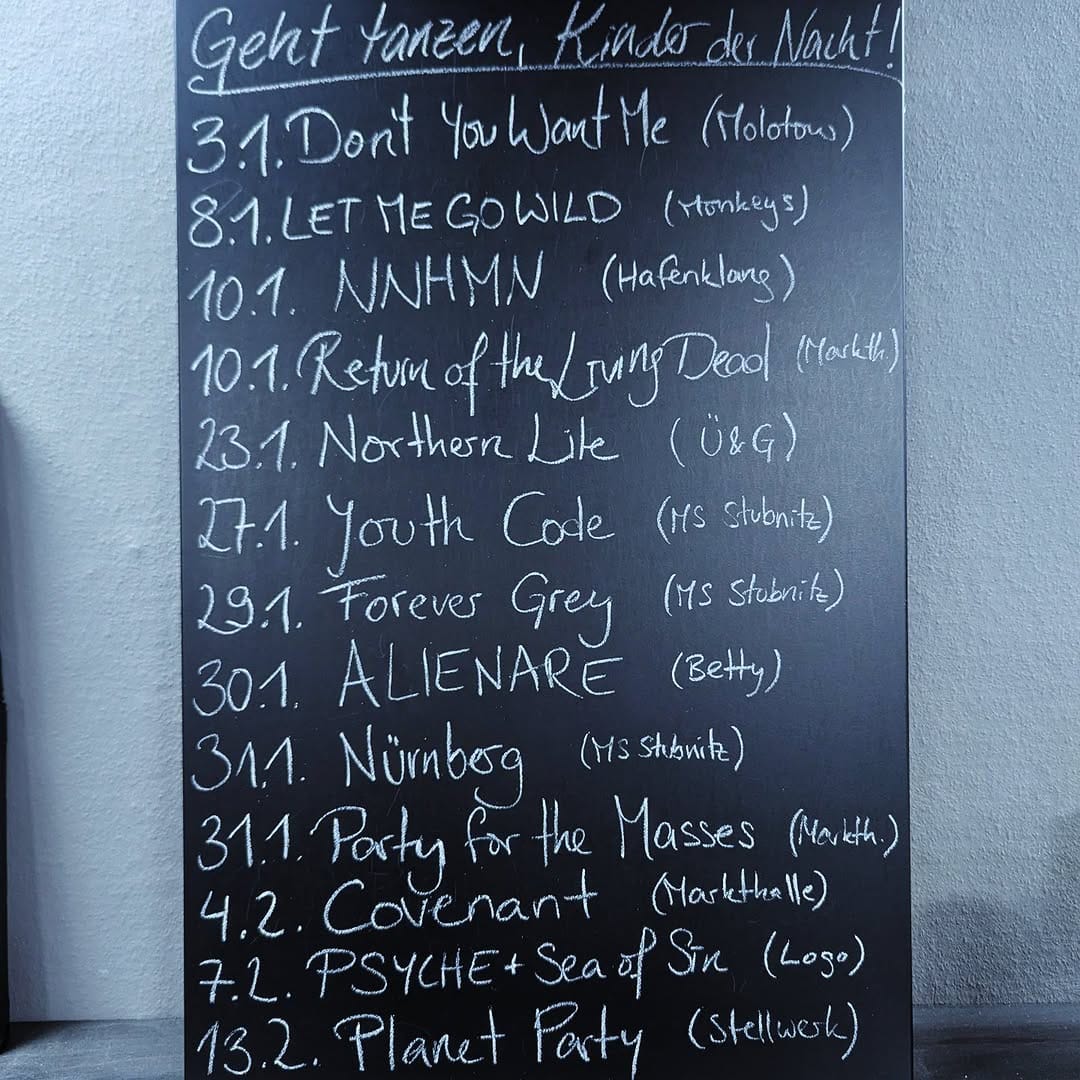 Geht tanzen, Kinder der Nacht!
3.1. Don't You Want Me (Molotow)
8.1. LET ME GO WILD (Monkeys)
10.1. NNHMN (Hafenklang)
10.1. Return of the Living Dead (Markth.)
23.1. Northern Lite (Ü&G)
27.1. Youth Code (MS Stubnitz)
29.1. Forever Grey (MS Stubnitz)
30.1. ALIENARE (Betty)
31.1. Nürnberg (MS Stubnitz)
31.1. Party for the Masses (Markth.)
4.2. Covenant (Markthalle)
7.2. PSYCHE + Sea of Sin (Logo)
13.2. Planet Party (Stellwerk)